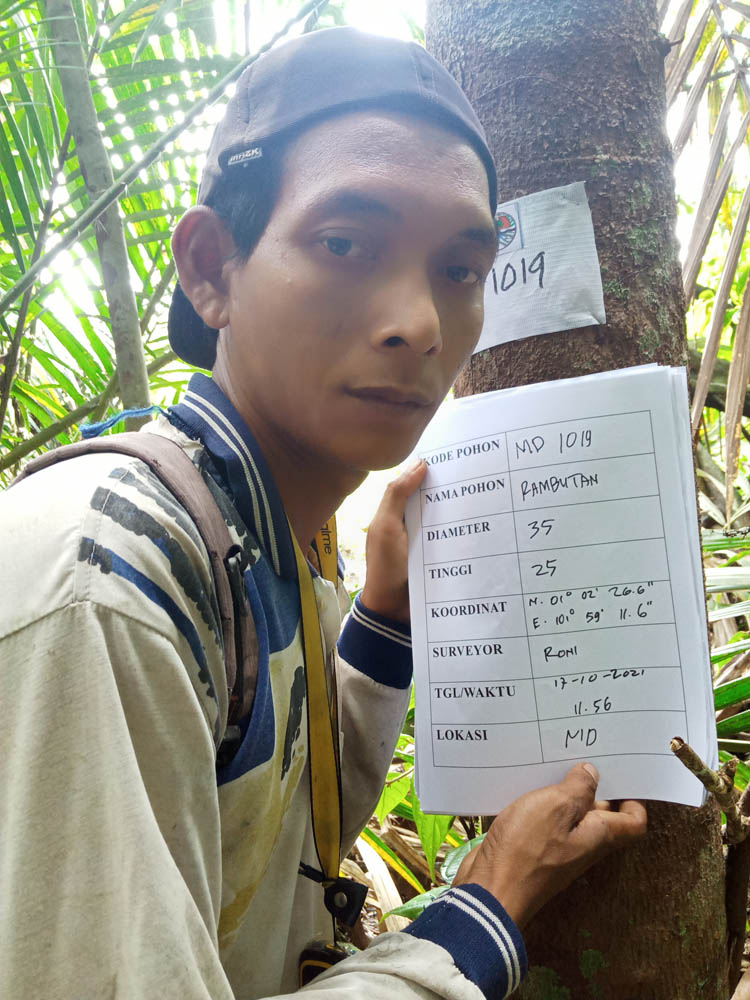 1019
KODE POHON MD 1019
NAMA POHON RAMBUTAN
DIAMETER 35
TINGGI 25
KOORDINAT N. 01° 02' 26.6"
E. 101° 59' 11.6"
SURVEYOR RONI
TGL/WAKTU 17-10-2021
11.56
LOKASI MD